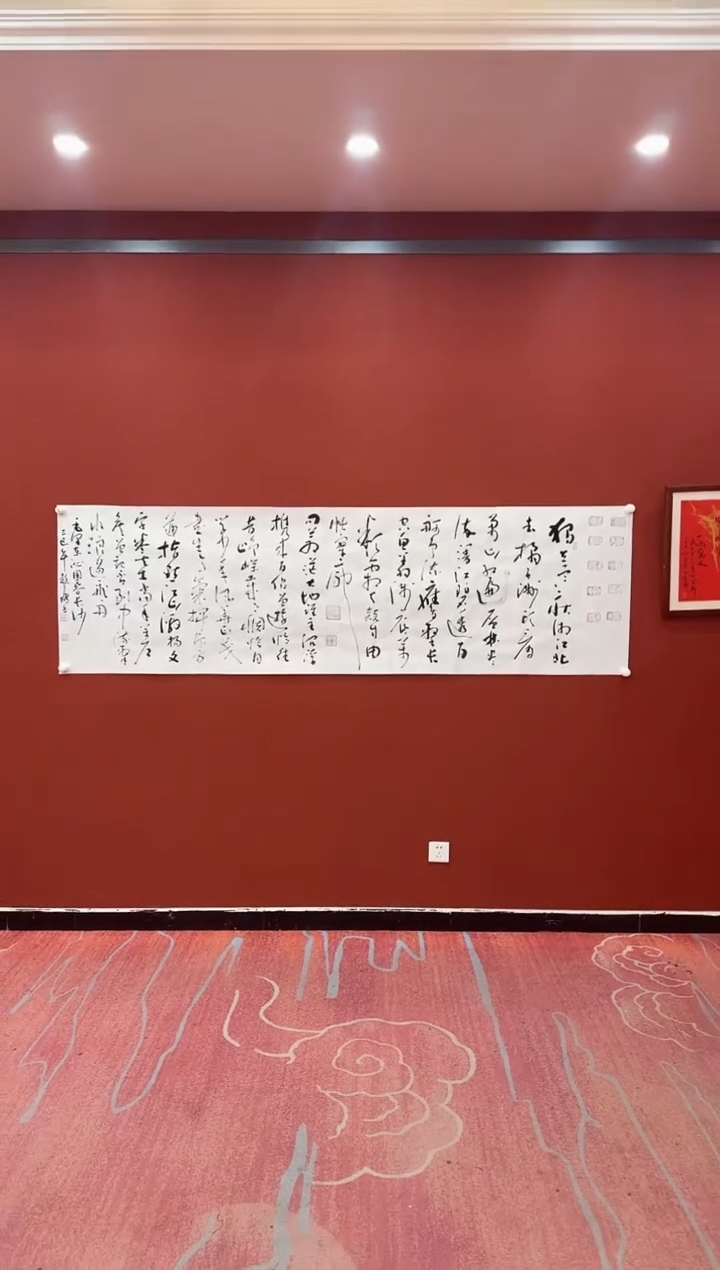 独立寒秋湘江北
去橘子洲头看
万山红遍层林尽
染漫江碧透百
舸争流鹰击长
空鱼翔浅底万
类霜天竞自由
怅寥廓
问苍茫大地谁主沉浮
携来百侣曾游忆往
昔峥嵘岁月稠恰同
学少年风华正茂
书生意气挥斥方
遒指点江山激扬文
字粪土当年万户
侯曾记否到中流击
水浪遏飞舟
毛泽东沁园春长沙
乙巳年